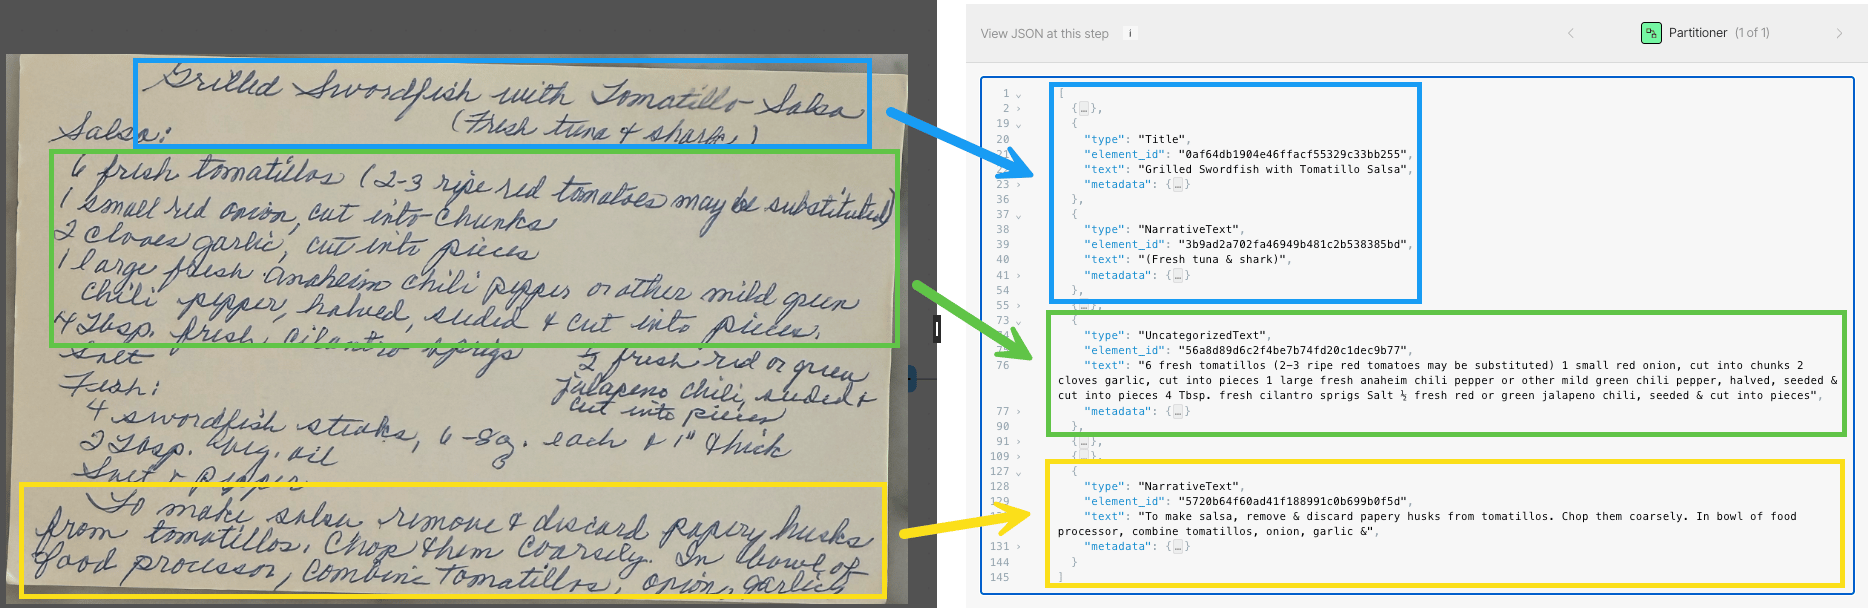 Grilled Swordfish with Tomatillo Salsa
(Fresh tuna & shark)
Salsa:
6 fresh tomatillos (2-3 ripe red tomatoes may be substituted)
1 small red onion, cut into chunks
2 cloves garlic, cut into pieces
1 large fresh anaheim chili pepper or other mild green
chili pepper, halved, seeded & cut into pieces.
4 Tbsp. fresh cilantro sprigs
Salt
1/2 fresh red or green
jalapeno chili, seeded &
cut into pieces
Fish:
4 swordfish steaks, 6-8 oz. each & 1" thick
2 Tbsp. veg. oil
Salt & Pepper
To make salsa remove & discard papery husks
from tomatillos. Chop them coarsely. In bowl of
food processor, combine tomatillos, onion, garlic
View JSON at this step i
Partitioner (1 of 1)
1 [
2 {…},
19 {
20 "type": "Title",
21 "element_id": "0af64db1904e46ffacf55329c33bb255",
"text": "Grilled Swordfish with Tomatillo Salsa",
23 "metadata": {…}
36 },
37 {
38 "type": "NarrativeText",
39 "element_id": "3b9ad2a702fa46949b481c2b538385bd",
40 "text": "(Fresh tuna & shark)",
41 "metadata": {…}
54 },
55 {…},
73 {
"type": "UncategorizedText",
"element_id": "56a8d89d6c2f4be7b74fd20c1dec9b77",
76 "text": "6 fresh tomatillos (2-3 ripe red tomatoes may be substituted) 1 small red onion, cut into chunks 2
cloves garlic, cut into pieces 1 large fresh anaheim chili pepper or other mild green chili pepper, halved, seeded &
cut into pieces 4 Tbsp. fresh cilantro sprigs Salt ½ fresh red or green jalapeno chili, seeded & cut into pieces",
77 "metadata": {…}
90 },
91 {…},
109 {…},
127 {
128 "type": "NarrativeText",
129 "element_id": "5720b64f60ad41f188991c0b699b0f5d",
"text": "To make salsa, remove & discard papery husks from tomatillos. Chop them coarsely. In bowl of food
processor, combine tomatillos, onion, garlic &",
131 "metadata": {…}
144 }
145 ]